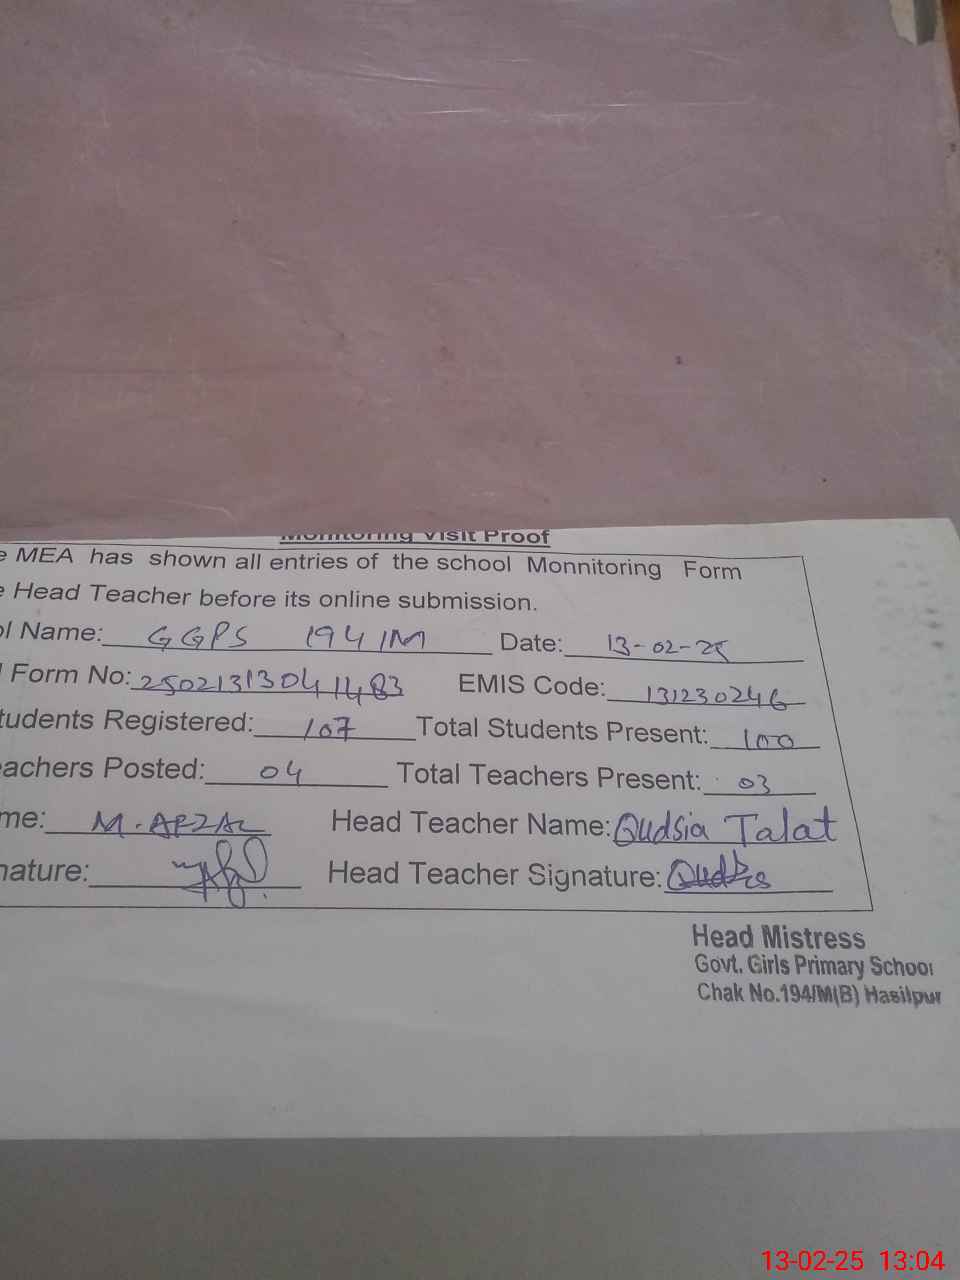 Monitoring Visit Proof
e MEA has shown all entries of the school Monnitoring Form
e Head Teacher before its online submission.
ol Name: GGPS 194/M Date: 13-02-25
l Form No: 25021313041483 EMIS Code: 131230246
tudents Registered: 107 Total Students Present: 100
eachers Posted: 04 Total Teachers Present: 03
me: M. AFZAL Head Teacher Name: Qudsia Talat
nature: Head Teacher Signature:
Head Mistress
Govt. Girls Primary School
Chak No.194/M(B) Hasilpur
13-02-25 13:04